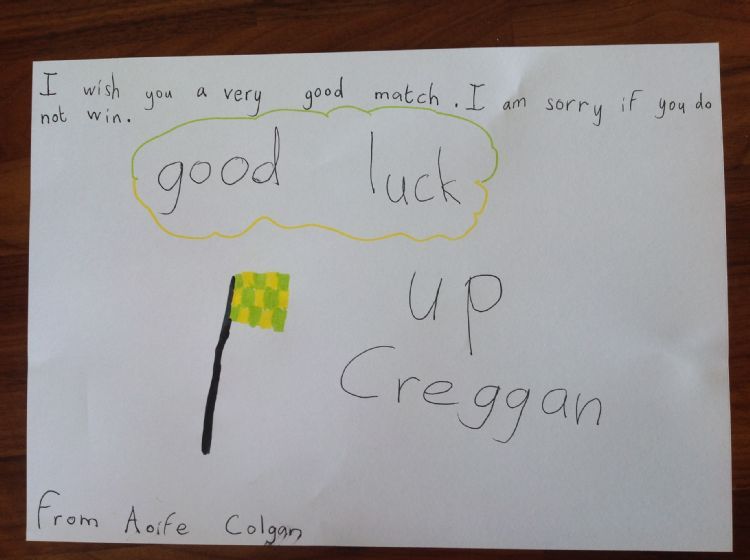 I wish you a very good match. I am sorry if you do
not win.
good luck
up
Creggan
From Aoife Colgan